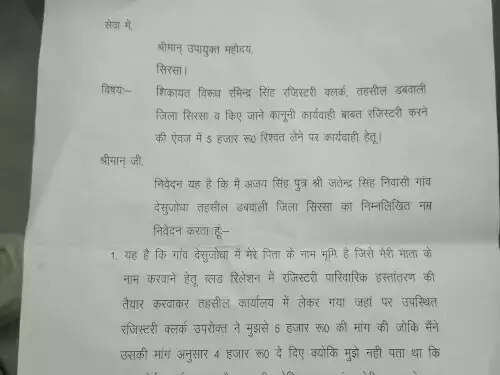 सेवा में,
श्रीमान् उपायुक्त महोदय,
सिरसा।
विषयः– शिकायत विरूध रमिन्द्र सिंह रजिस्टरी क्लर्क, तहसील डबवाली
जिला सिरसा व किए जाने कानूनी कार्यवाही बाबत रजिस्टरी करने
की ऐवज में 5 हजार रू0 रिश्वत लेने पर कार्यवाही हेतू।
श्रीमान् जी,
निवेदन यह है कि मैं अजय सिंह पुत्र श्री जतेन्द्र सिंह निवासी गांव
देसुजोधा तहसील डबवाली जिला सिरसा का निम्नलिखित नम्र
निवेदन करता हूः–
1. यह है कि गांव देसुजोधा में मेरे पिता के नाम भूमि है जिसे मेरी माता के
नाम करवाने हेतू ब्लड रिलेशन में रजिस्टरी पारिवारिक हस्तांतरण की
तैयार करवाकर तहसील कार्यालय में लेकर गया जहां पर उपस्थित
रजिस्टरी क्लर्क उपरोक्त ने मुझसे 5 हजार रू0 की मांग की जोकि मैंने
उसकी मांग अनुसार 4 हजार रू0 दे दिए क्योंकि मुझे नही पता था कि